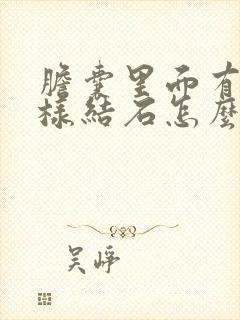 膽囊里面有
樣結石怎麼
吴崢